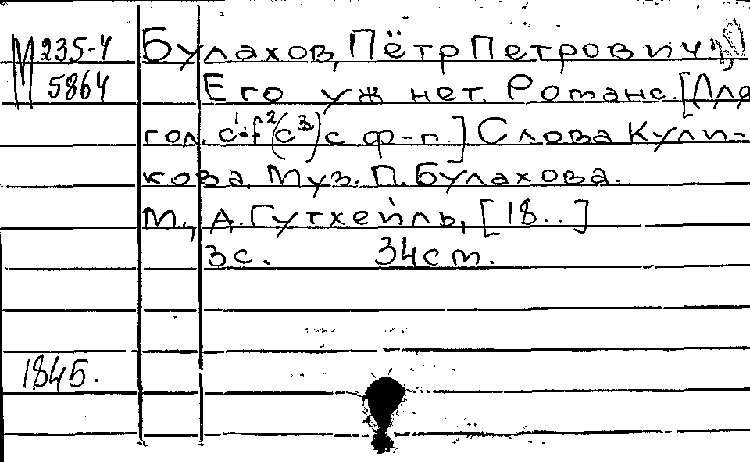 М 235-4 Булахов, Пётр Петрович
5864 Его уж нет. Романс. [Для
гол. c¹-f²(c³) с ф-п.] Слова Кули-
кова. Муз. П. Булахова.
М., А. Гутхейль, [18..]
3с. 34см.
1845.